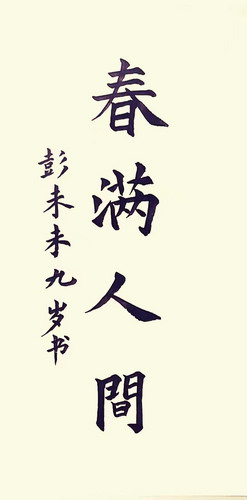 春满人間
彭未未九岁书